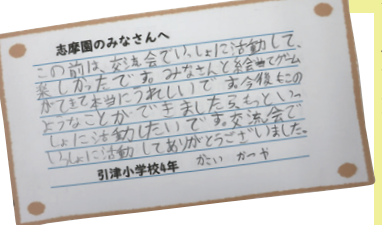 志摩園のみなさんへ
この前は、交流会でいっしょに活動して、
楽しかったです。みなさんと絵曲でゲーム
ができて本当にうれしいです。今後もこの
ようなことができましたら、もっといっ
しょに活動したいです。交流会で
いっしょに活動してありがとうございました。
引津小学校4年 かい かつや